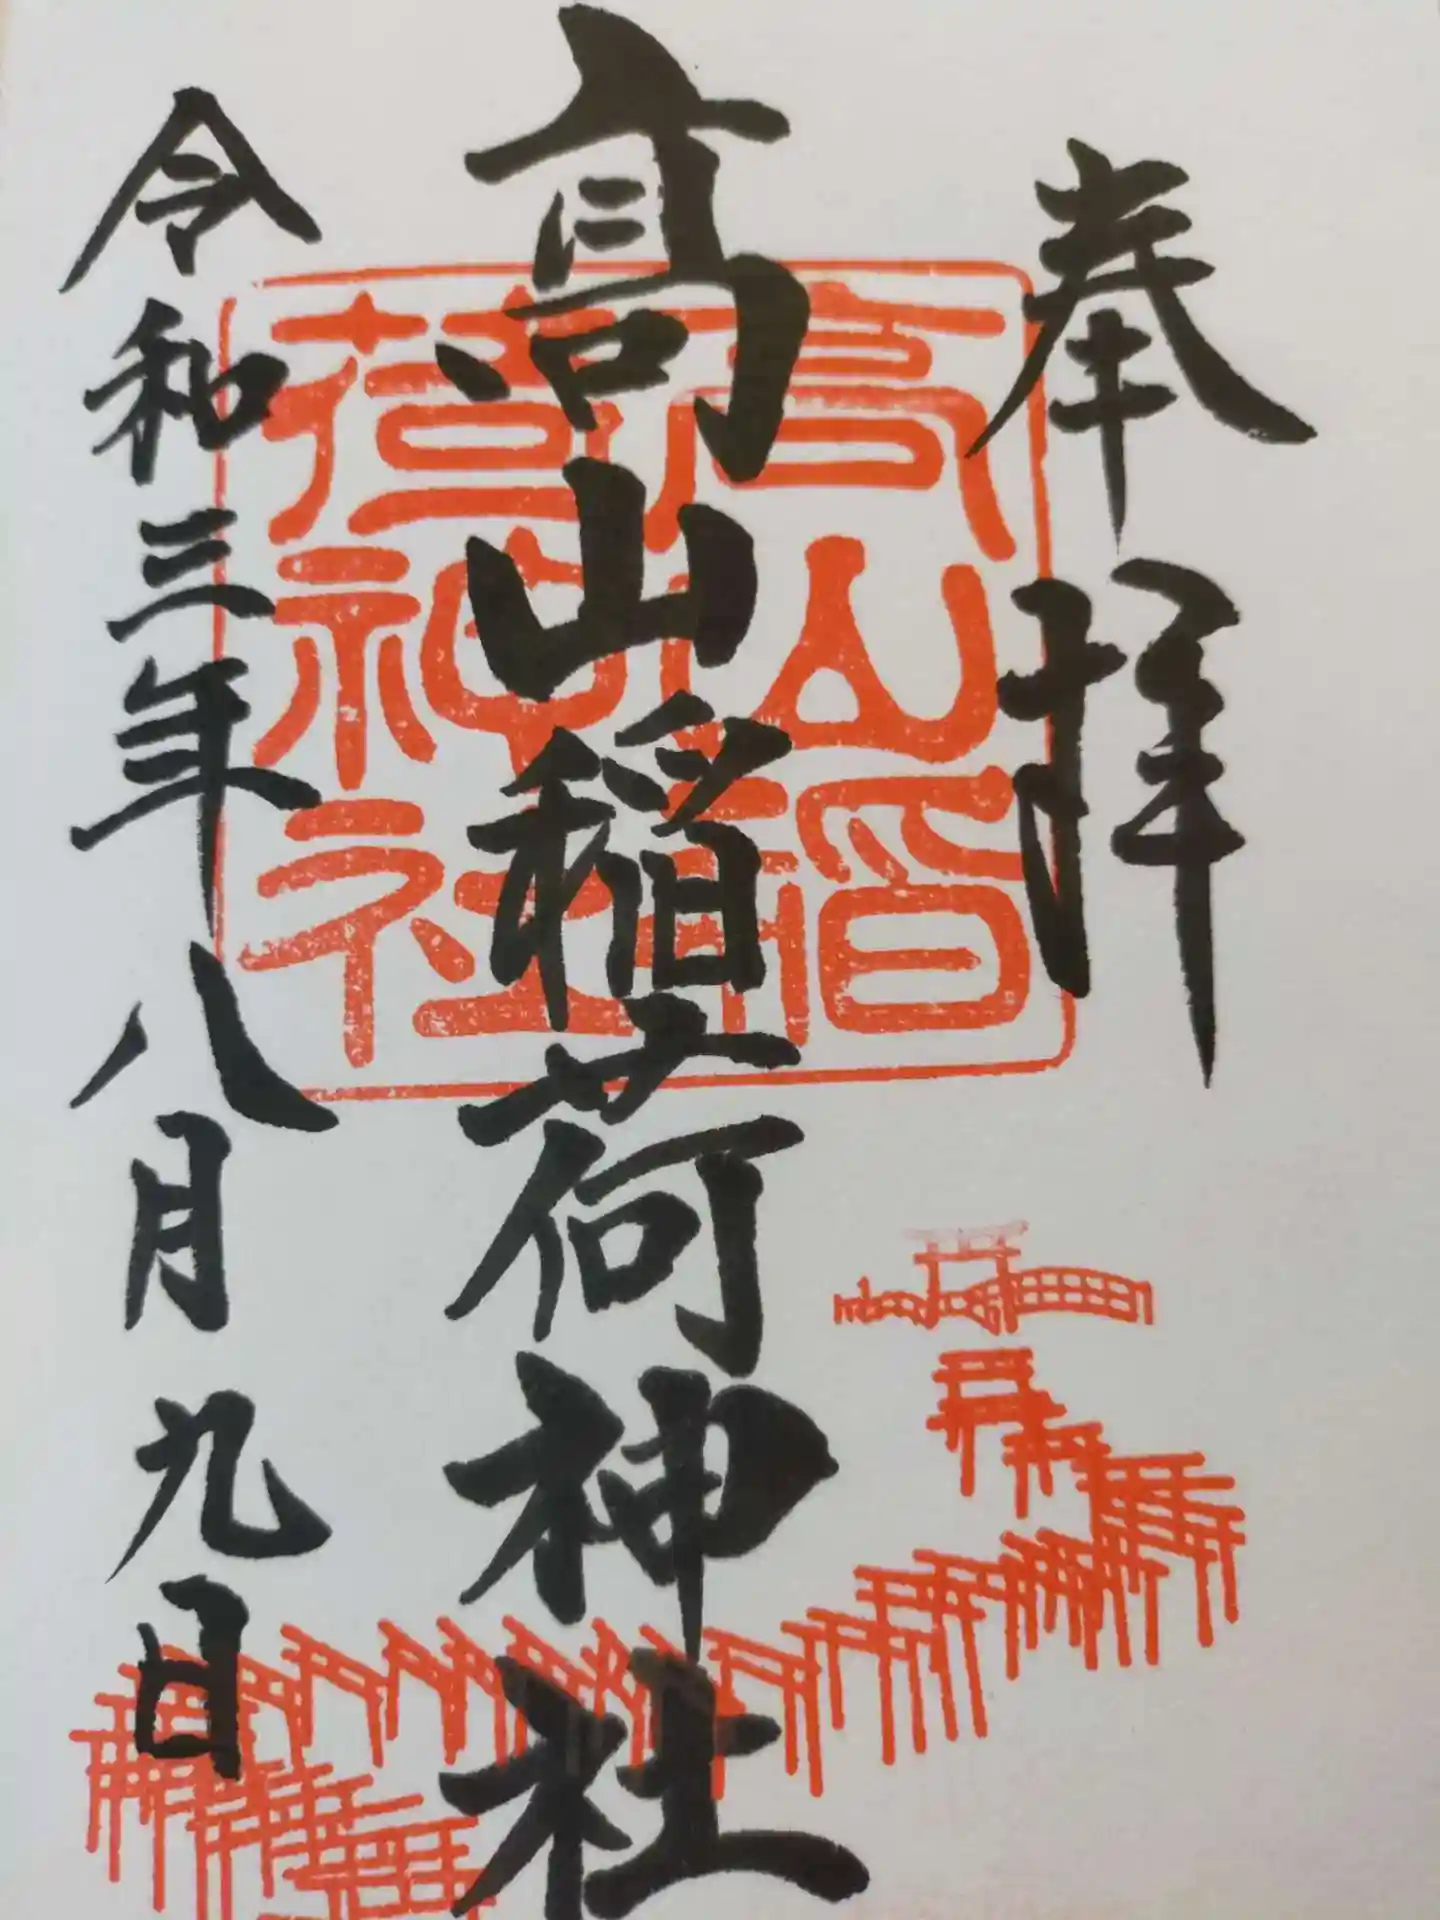 奉拝
高山稲荷神社
高山稲荷神社
令和三年八月九日